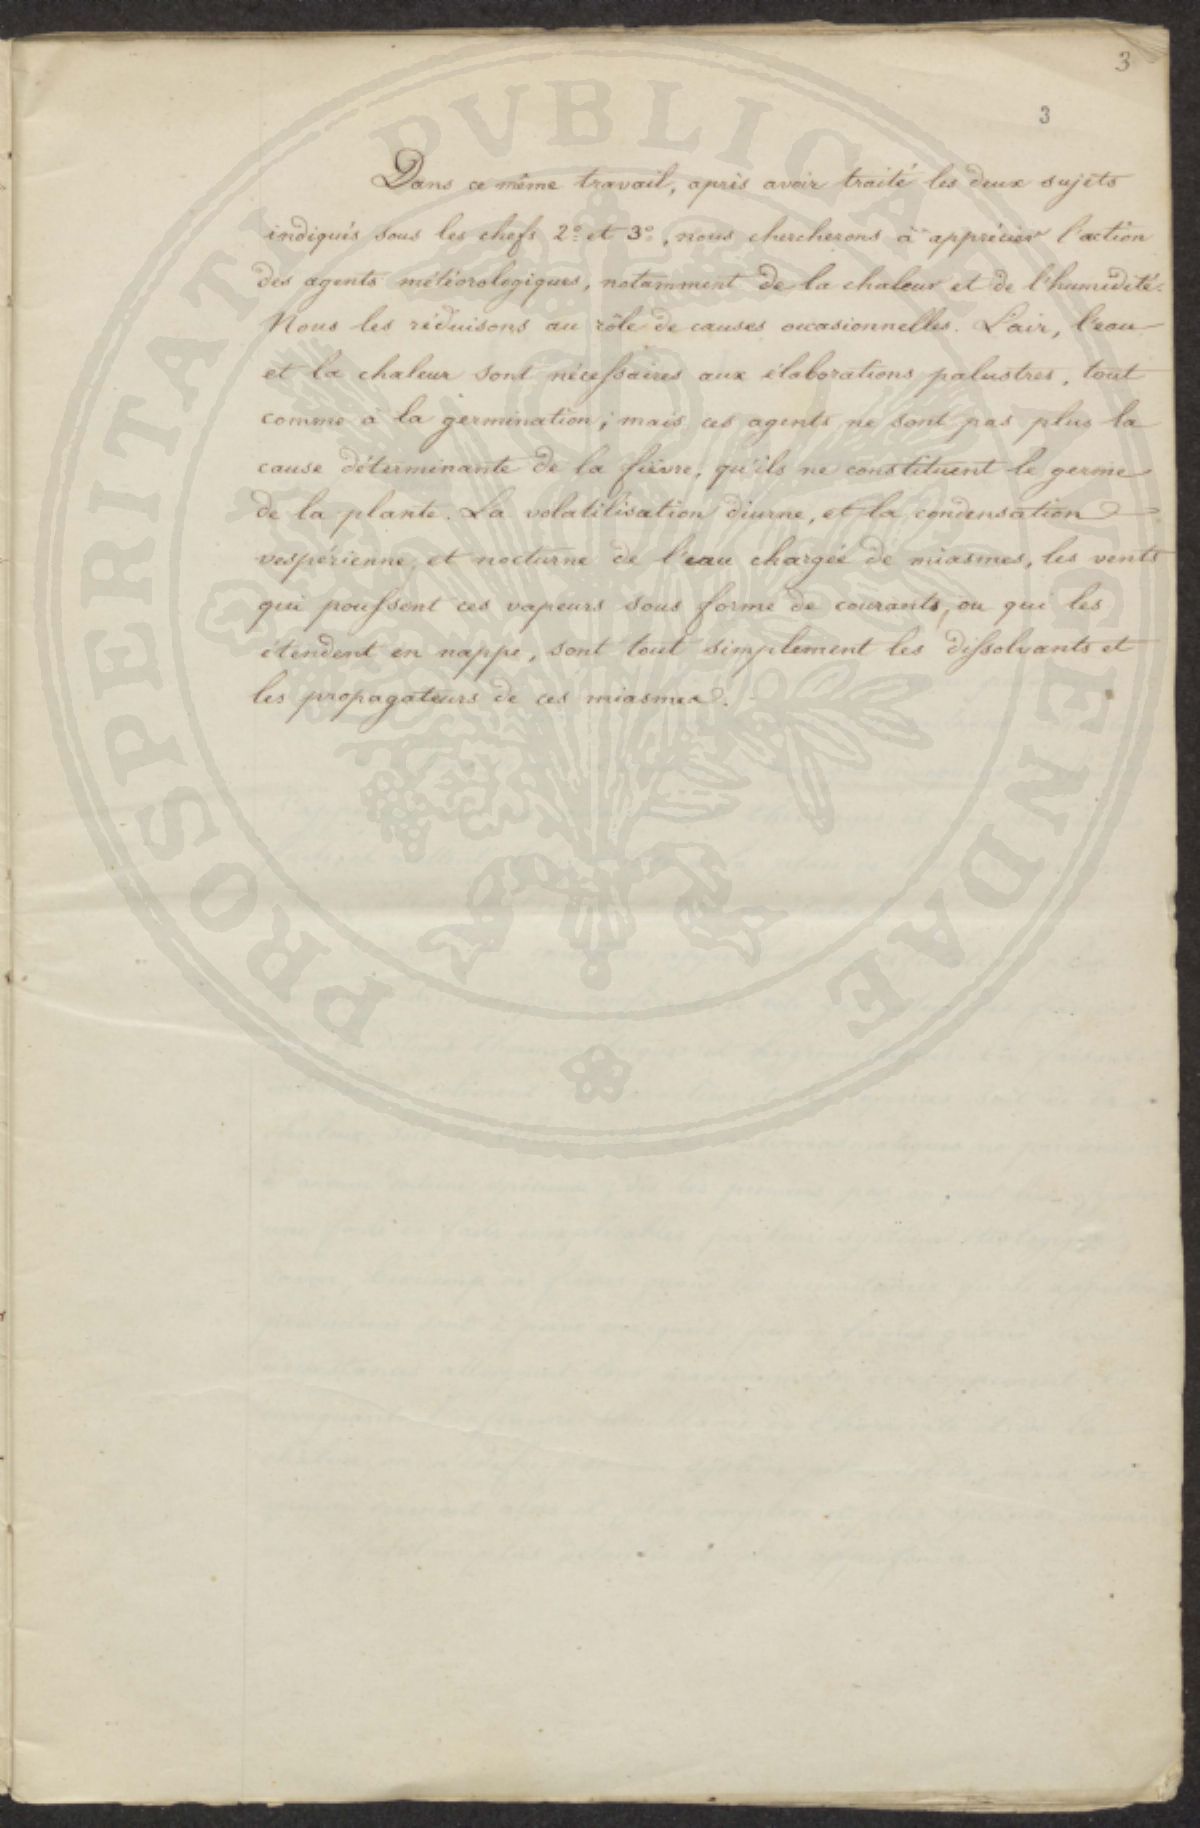 3
3
Dans ce même travail, après avoir traité les deux sujets
indiqués sous les chefs 2° et 3°, nous chercherons à apprécier l'action
des agents météorologiques, notamment de la chaleur et de l'humidité.
Nous les réduisons au rôle de causes occasionnelles. L'air, l'eau
et la chaleur sont nécessaires aux élaborations palustres, tout
comme à la germination; mais ces agents ne sont pas plus la
cause déterminante de la fièvre, qu'ils ne constituent le germe
de la plante. La volatilisation diurne, et la condensation
vespérienne et nocturne de l'eau chargée de miasmes, les vents
qui poussent ces vapeurs sous forme de courants, ou qui les
étendent en nappe, sont tout simplement les dissolvants et
les propagateurs de ces miasmes.
PROSPERITATI PVBLICAE AVGENDAE